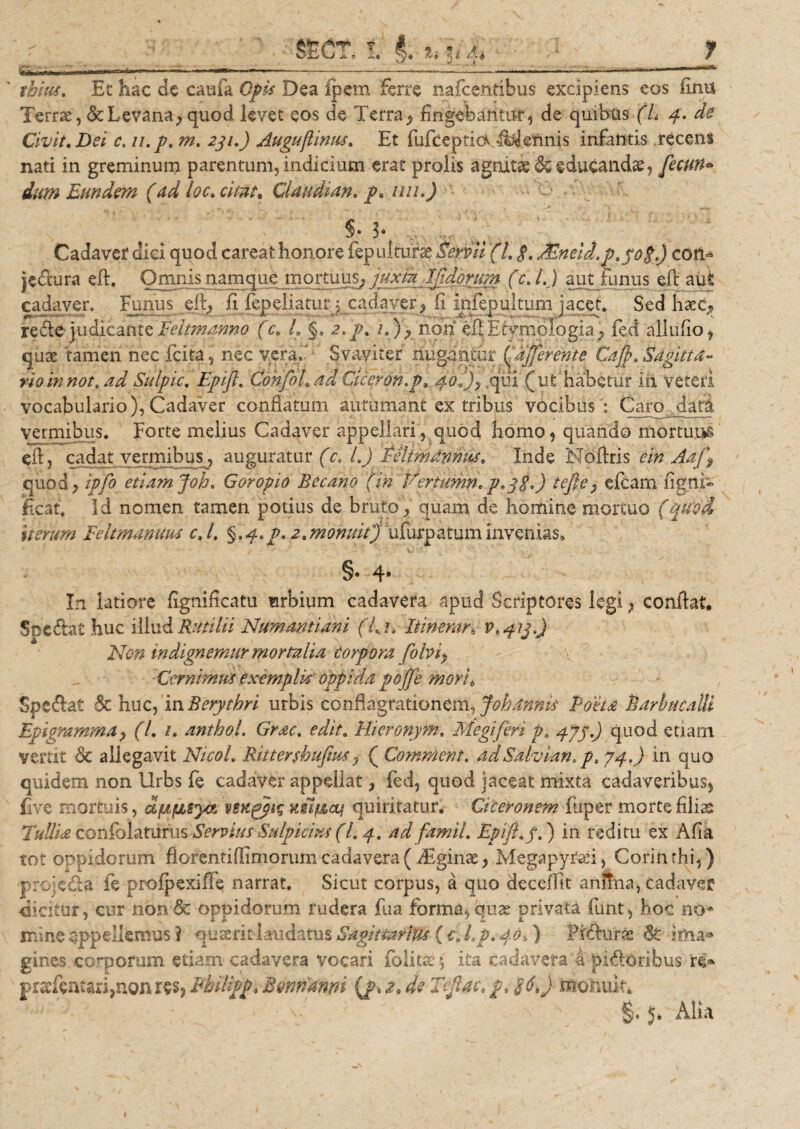 SECT. I. §. 2. 3. 4. 7
thius. Et hac de causa Opis Dea spem ferre nascentibus excipiens eos sinu
Terræ, & Levana, quod levet eos de Terra, fingebantur, de quibus (l. 4. de
Civit. Dei c. 11. p. m. 231.) Augustinus. Et susceptio solennis infantis recens
nati in greminum parentum, indicium erat prolis agnitæ & educandæ, secun-
dum Eundem (ad loc. citat. Claudian. p. 1111.)
§. 3.
Cadaver dici quod careat honore sepulturæ Servii (l. 8. Æneid. p. 508.) con-
jectura est. Omnis namque mortuus, juxta Isidorum (c. l.) aut funus est aut
cadaver. Funus est, si sepeliatur; cadaver, si insepultum jacet. Sed hæc,
recte judicante Feltmanno (c. l. §. 2. p. 1.), non est Etymologia, sed allusio,
quæ tamen nec scita, nec vera. Svaviter nugantur (afferente Casp. Sagitta-
rio in not. ad Sulpic. Epist. Consol. ad Ciceron. p. 40.), qui (ut habetur in veteri
vocabulario), Cadaver conflatum autumant ex tribus vocibus: Caro data
vermibus. Forte melius Cadaver appellari, quod homo, quando mortuus
est, cadat vermibus, auguratur (c. l.) Feltmannus. Inde Nostris ein Aas,
quod, ipso etiam Joh. Goropio Becano (in Vertumn. p. 38.) teste, escam signi-
ficat. Id nomen tamen potius de bruto, quam de homine mortuo (quod
iterum Feltmanuus c. l. §. 4. p. 2. monuit) usurpatum invenias.
§. 4.
In latiore significatu urbium cadavera apud Scriptores legi, constat.
Spectat huc illud Rutilii Numantiani (l. 1. Itinerar. v. 413.)
Non indignemur mortalia corpora solvi,
Cernimus exemplis oppida posse mori.
Spectat & huc, in Berythri urbis conflagrationem, Johannis Poëtæ Barbucalli
Epigramma, (l. 1. anthol. Græc. edit. Hieronym. Megiseri p. 475.) quod etiam
vertit & allegavit Nicol. Rittershusius, (Comment. ad Salvian. p. 74.) in quo
quidem non Urbs se cadaver appellat, sed, quod jaceat mixta cadaveribus,
sive mortuis, ἄμμιγα νεκροῖς κεῖμαι quiritatur. Ciceronem super morte filiæ
Tulliæ consolaturus Servius Sulpicius (l. 4. ad famil. Epist. 5.) in reditu ex Asia
tot oppidorum florentissimorum cadavera (Æginæ, Megapyræi, Corinthi,)
projecta se prospexisse narrat. Sicut corpus, à quo decessit anima, cadaver
dicitur, cur non & oppidorum rudera sua forma, quæ privata sunt, hoc no-
mine appellemus? quærit laudatus Sagittarius (c. l. p. 40.) Picturæ & ima-
gines corporum etiam cadavera vocari solitæ; ita cadavera à pictoribus re-
præsentari, non res, Philipp. Bonnanni (p. 2. de Testac. p. 86.) monuit.
§. 5. Alia